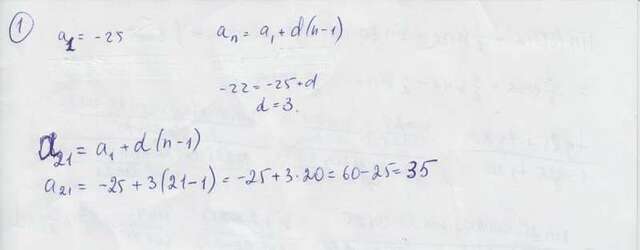 1
a₁ = -25
aₙ = a₁ + d(n-1)
-22 = -25 + d
d = 3.
a₂₁ = a₁ + d(n-1)
a₂₁ = -25 + 3(21-1) = -25 + 3·20 = 60 - 25 = 35